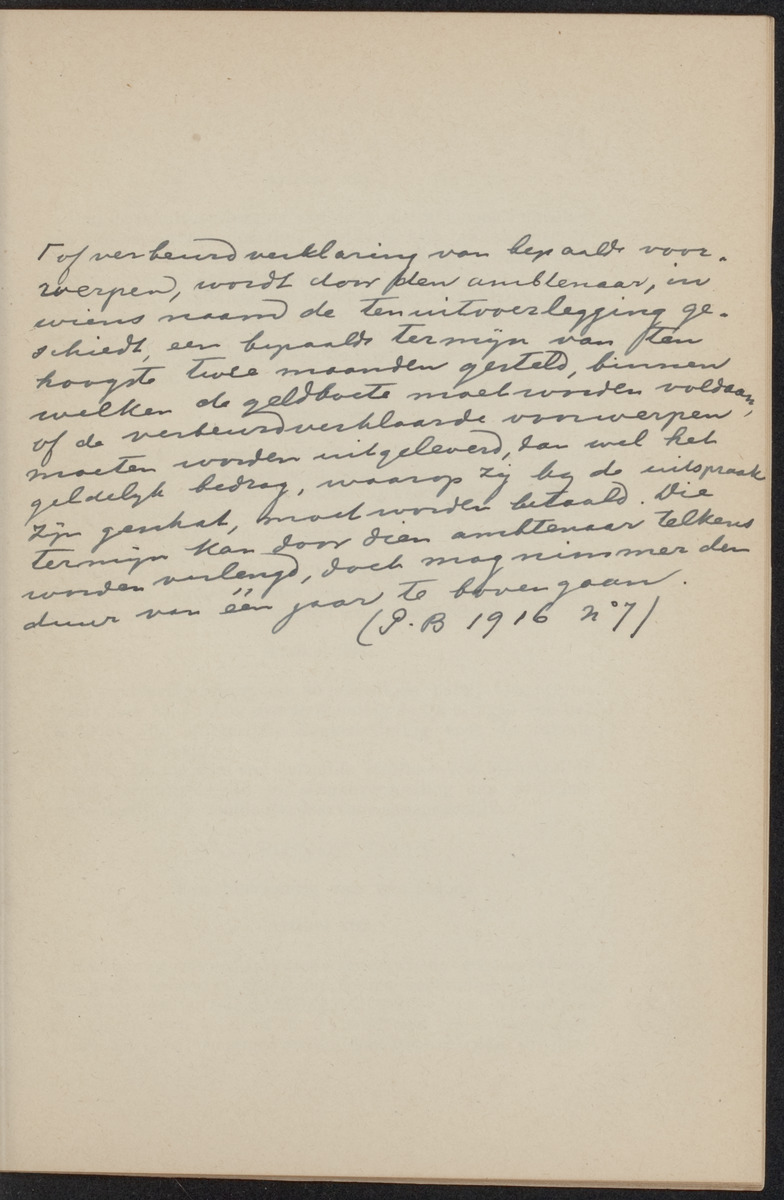 ⌈of verbeurdverklaring van bepaalde voor-
werpen, wordt door den ambtenaar, in
wiens naam de tenuitvoerlegging ge-
schiedt, een bepaalde termijn van ten
hoogste twee maanden gesteld, binnen
welken de geldboete moet worden voldaan,
of de verbeurdverklaarde voorwerpen
moeten worden uitgeleverd, dan wel het
geldelijk bedrag, waarop zij bij de uitspraak
zijn geschat, moet worden betaald. Die
termijn kan door dien ambtenaar telkens
worden verlengd, doch mag nimmer den
duur van één jaar te boven gaan.
(P.B 1916 No 7)